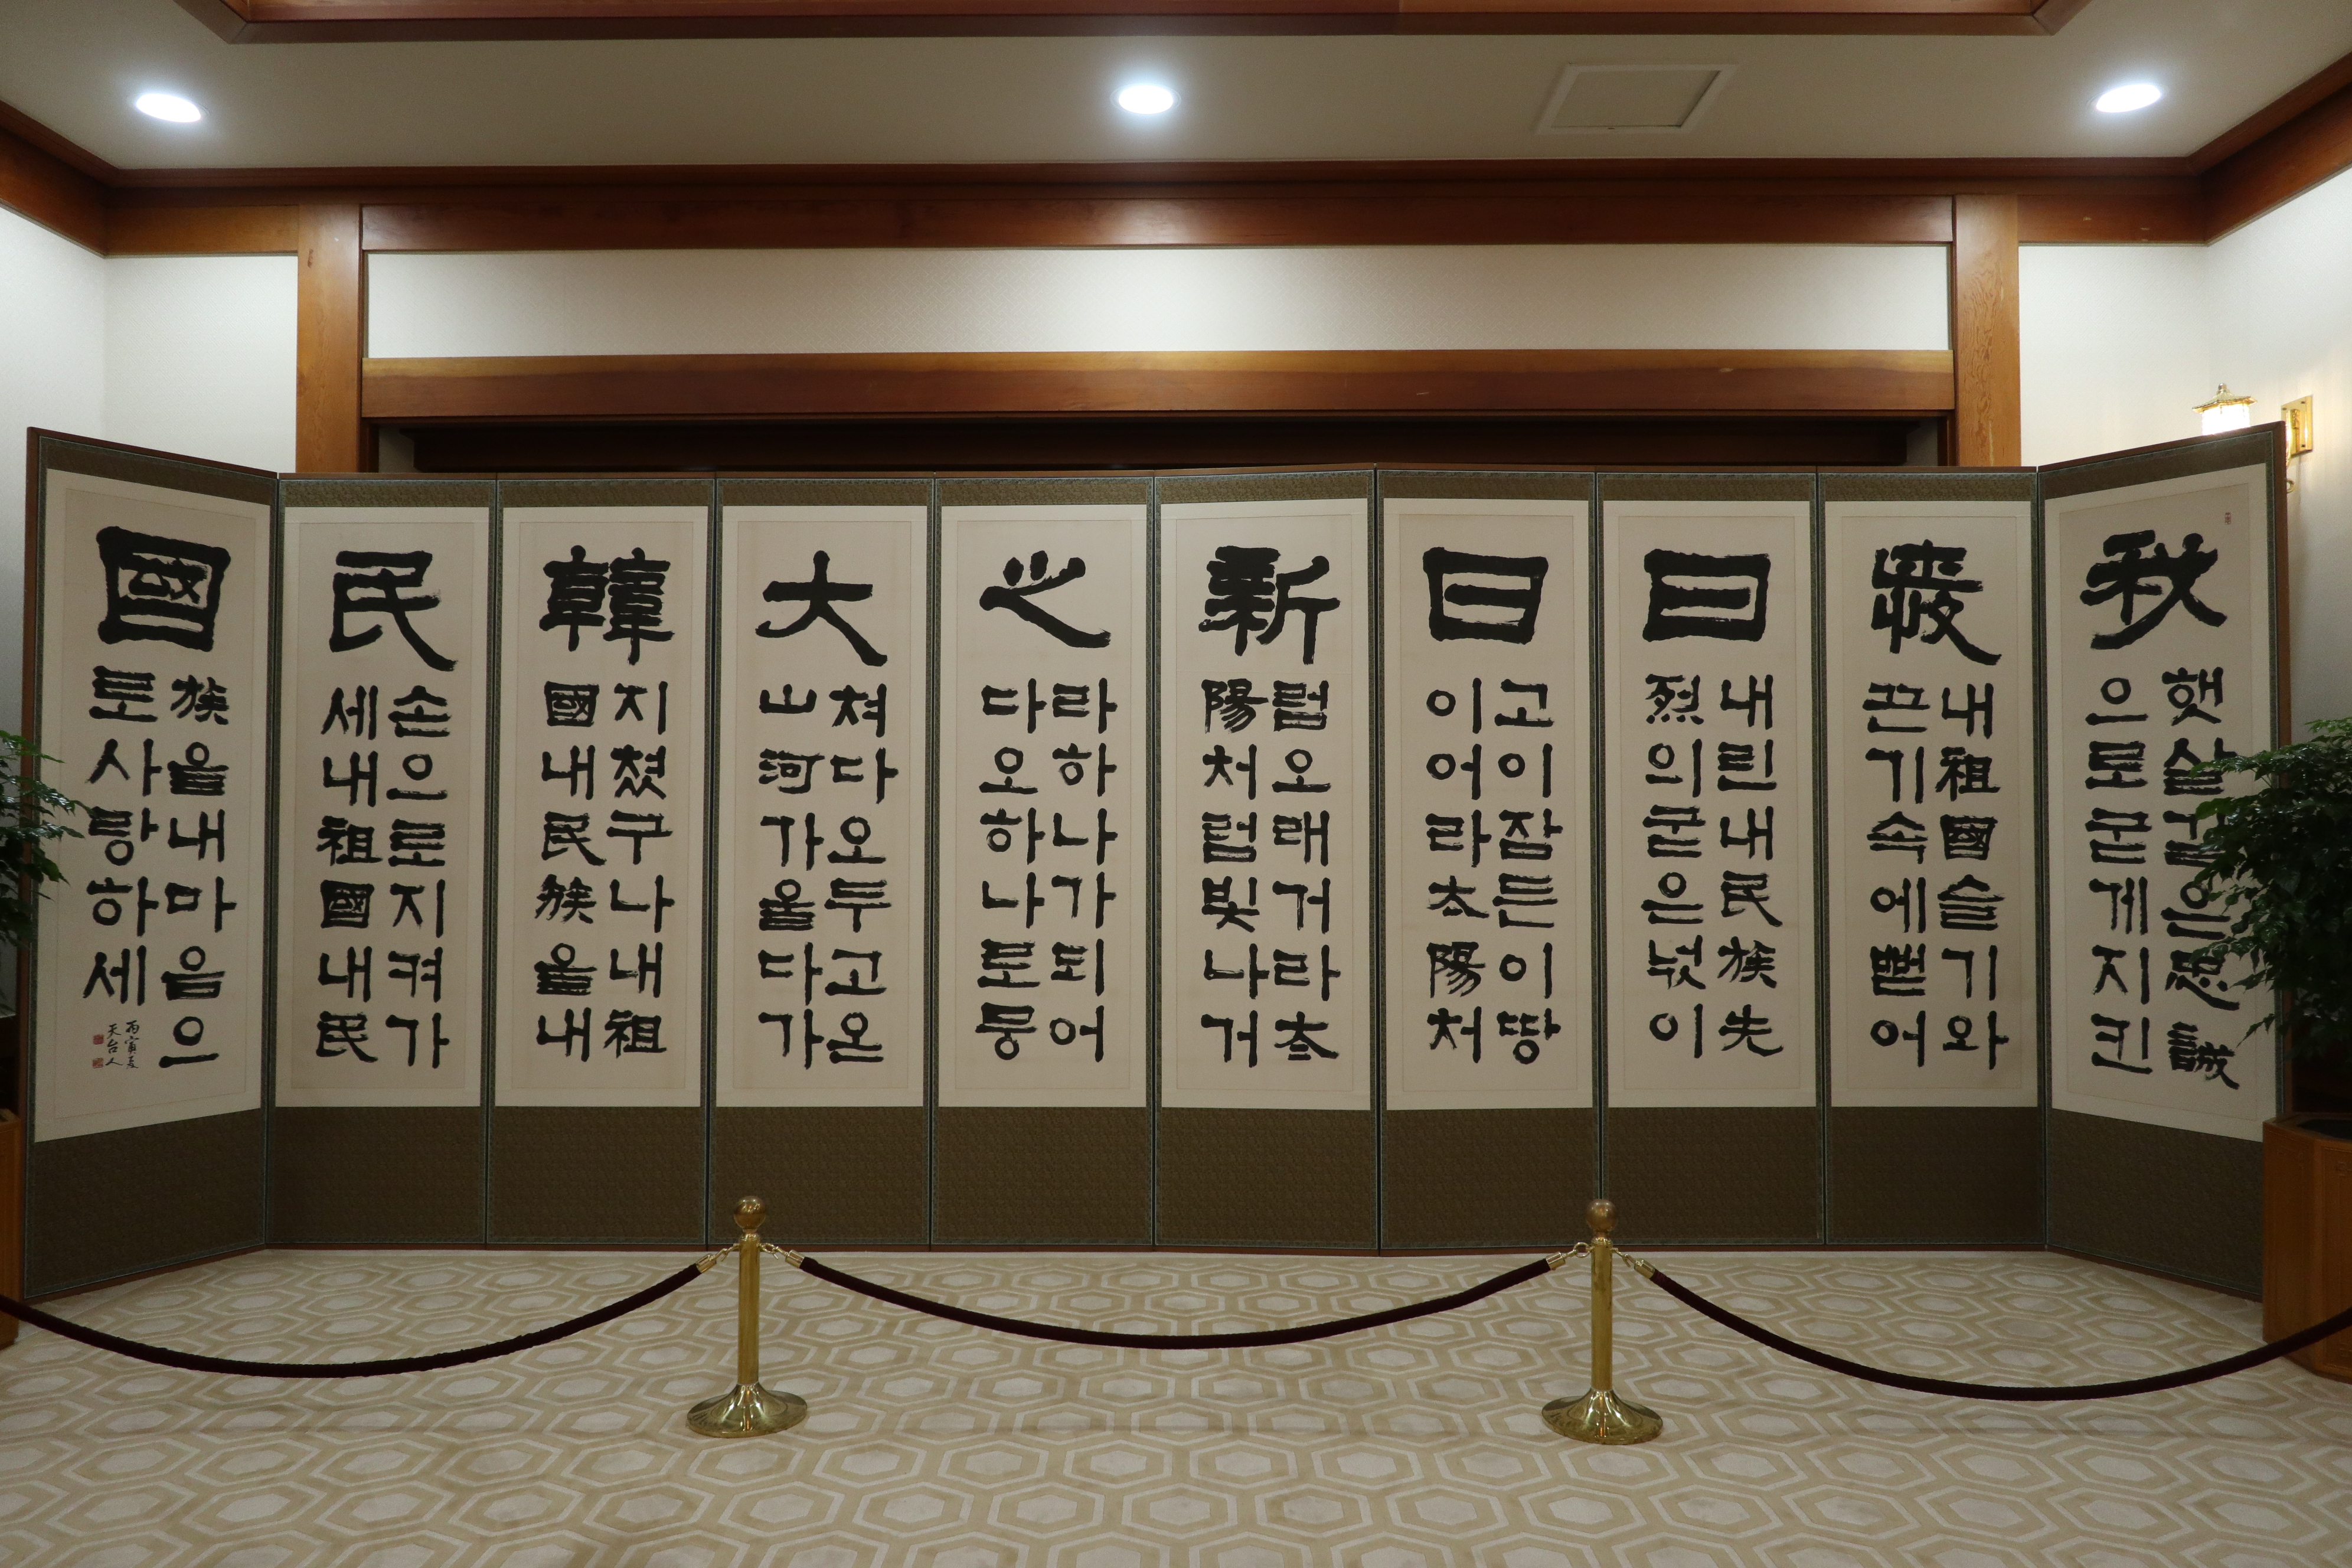 秋
햇살같은忠誠
으로굳게지킨
내祖國슬기와
끈기속에뻗어
日
내린내民族先
烈의굳은넋이
日
고이잠든이땅
이어라太陽처
新
럼오래거라太
陽처럼빛나거
之
라하나가되어
다오하나로뭉
大
쳐다오두고온
山河가울다가
韓
지쳤구나내祖
國내民族을내
民
손으로지켜가
세내祖國내民
國
族을내마음으
로사랑하세
丙寅
天台人